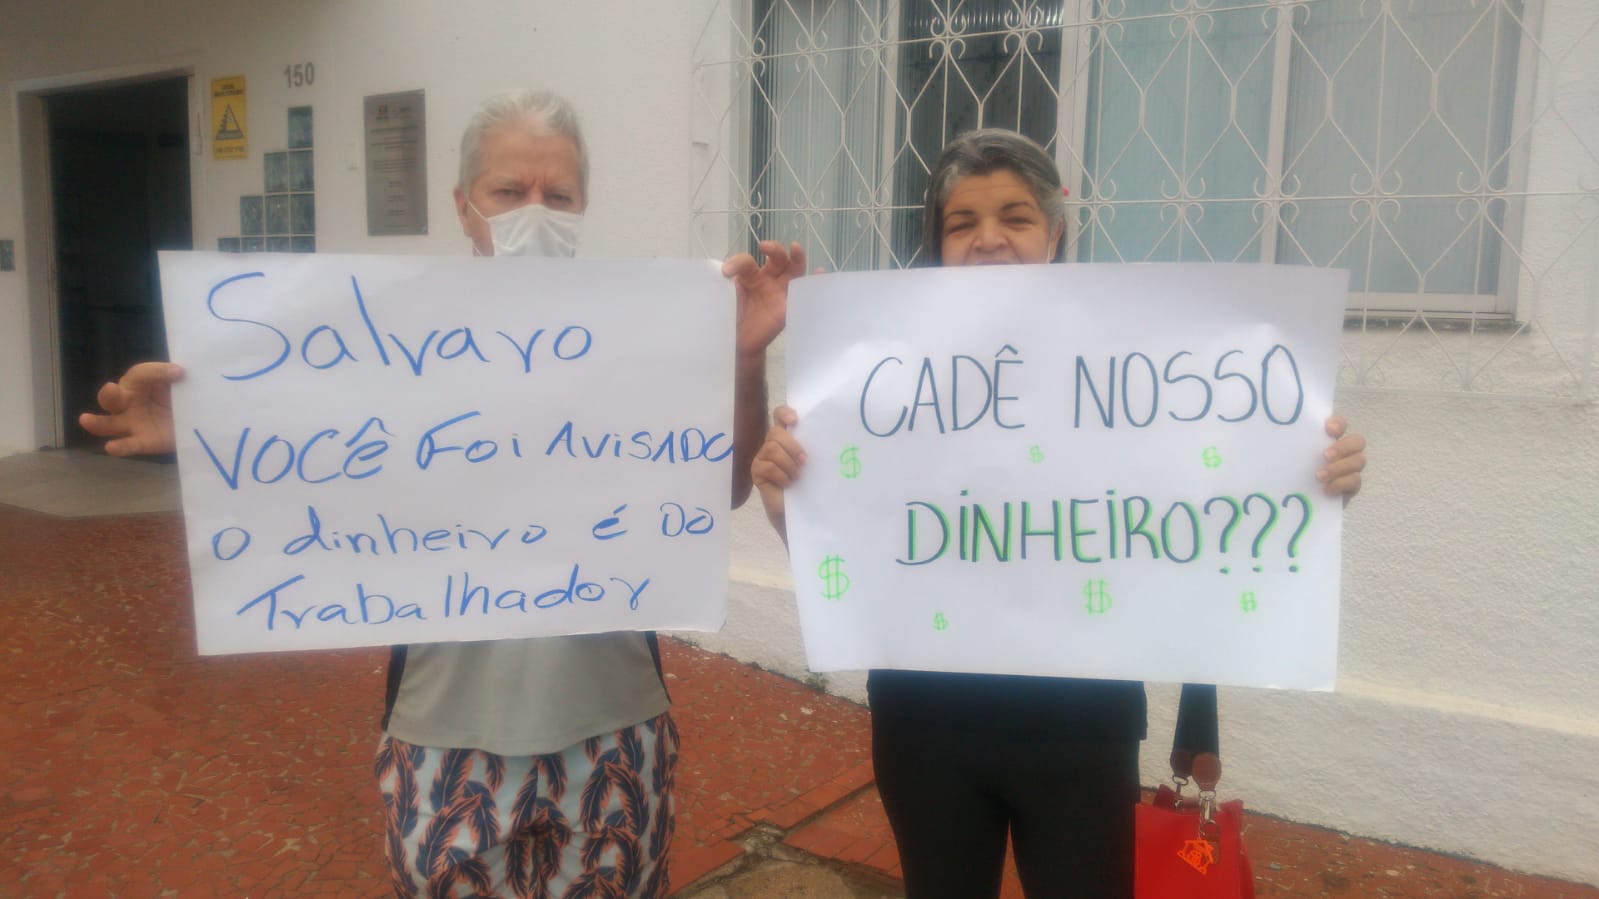 150
Salvaro
VOCÊ FOI AVISADO
O dinheiro é DO
Trabalhador
CADÊ NOSSO
$ $ $
DINHEIRO???
$ $ $
$